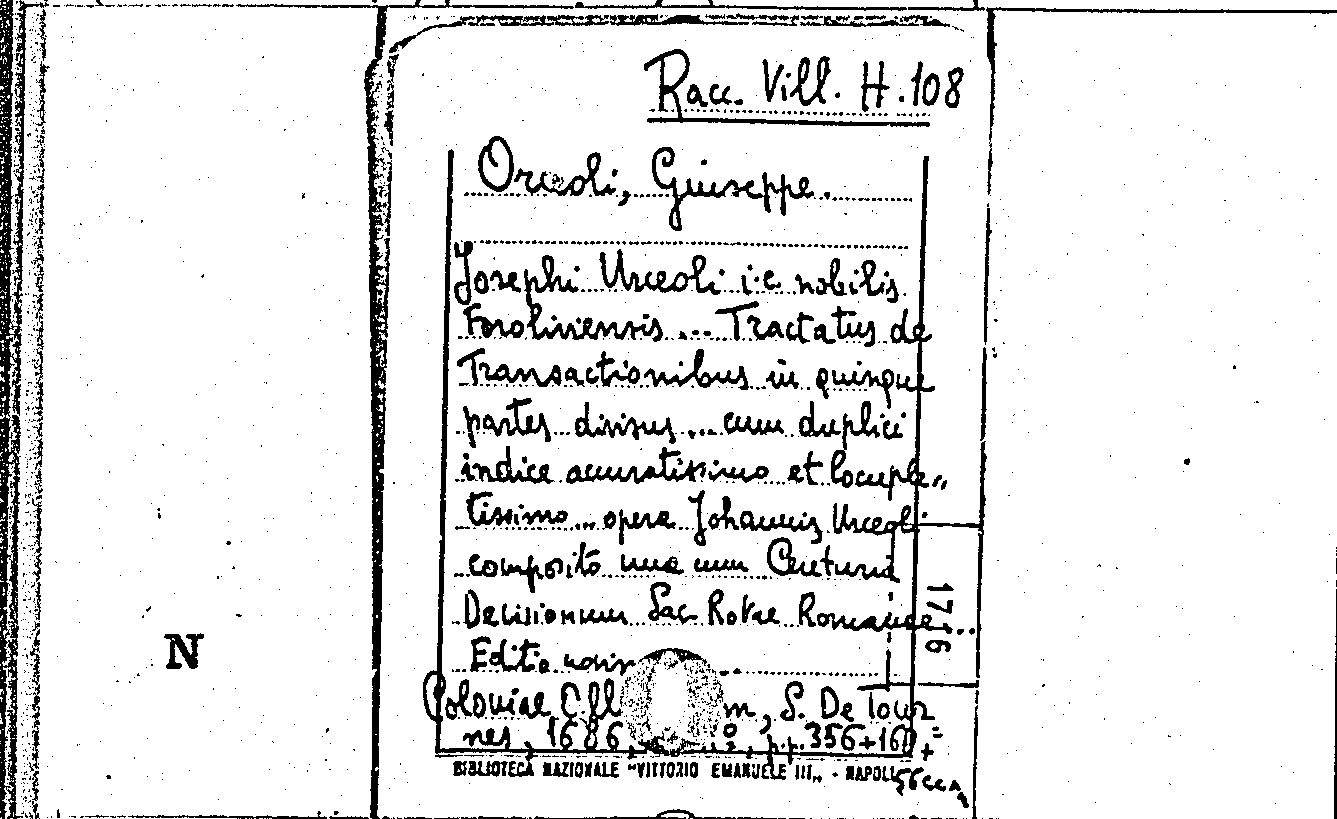 Racc. Vill. H.108
Orceoli, Giuseppe.
Josephi Urceoli i.c. nobilis
Foroliviensis ... Tractatus de
Transactionibus in quinque
partes divisus ... cum duplici
indice accuratissimo et locuple„
tissimo ... opera Johannis Urceoli
composito una cum Centuria
Decisionum Sac Rotae Romanae ...
1716
Editio
N
Coloniae m, S. De Tour=
nes, 1686, pp. 356+160+
BIBLIOTECA NAZIONALE "VITTORIO EMANUELE III„ - NAPOLI